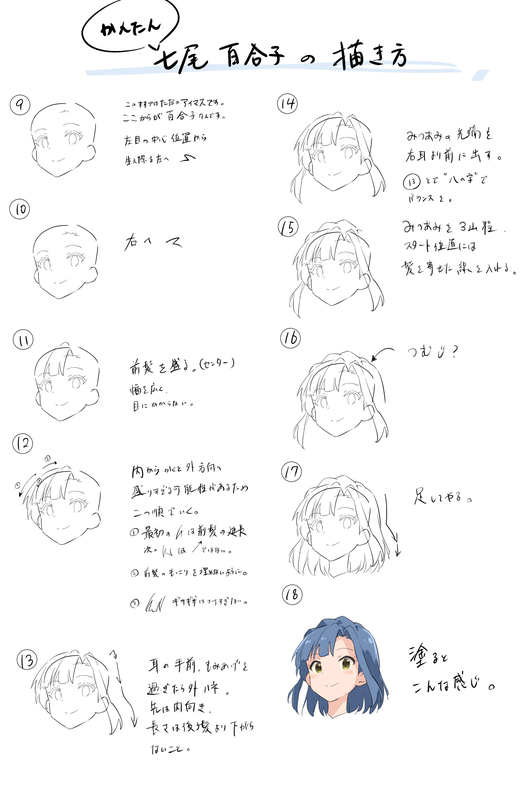 かんたん
七尾 百合子 の 描き方
⑨
この時点ではただのアイマスです。
ここからが百合子なんです。
左目の中心位置から
生え際左へ
⑩
右へ
⑪
前髪を盛る。(センター)
幅を広く
目にかからない。
⑫
① ②
内からかくと外方向へ
盛りすぎる可能性があるため
二つの順でいく。
①最初の は前髪の延長
次の は ではない。
②前髪の
ギザギザは
⑬
耳の手前、もみあげを
過ぎたら外ハネ。
先は内向き。
長さは後ろ髪より下がら
ないこと。
⑭
みつあみの先端を
右耳より前に出す。
⑬とで"八の字"で
バランスを。
⑮
みつあみを3山程。
スタート位置には
髪を寄せた線を入れる。
⑯
つむじ?
⑰
足してやる。
⑱
塗ると
こんな感じ。